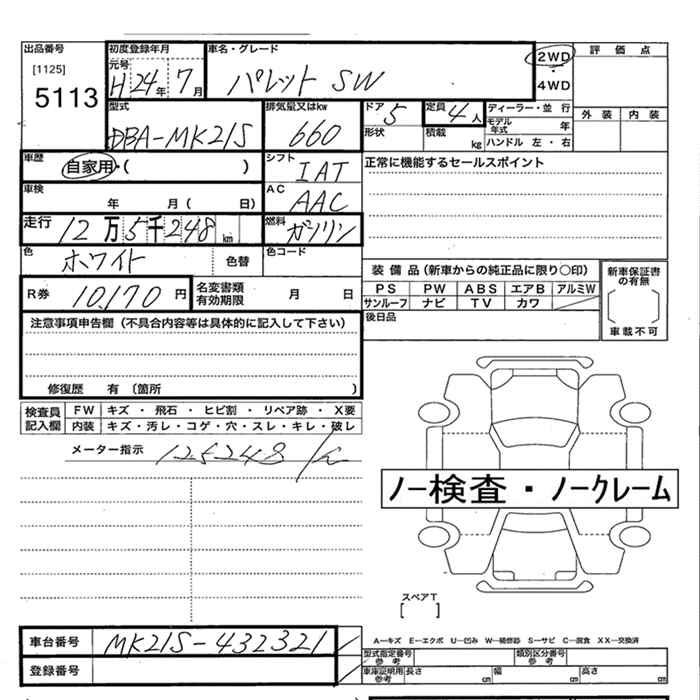 出品番号 初度登録年月 車名・グレード 2WD 評価点
[1125] 元号
5113 H24年 7月 パレット SW 4WD
型式 排気量又はkw ドア 5 定員 4人 ディーラー・並行 外装 内装
DBA-MK21S 660 形状 積載 kg モデル年式 年
ハンドル 左・右
車歴 自家用・( ) シフト IAT 正常に機能するセールスポイント
車検 年 月( 日) AC AAC
走行 12万5千248km 燃料 ガソリン
色 ホワイト 色替 色コード
装備品(新車からの純正品に限り〇印) 新車保証書の有無
R券 10170円 名変書類有効期限 月 日 PS PW ABS エアB アルミW
サンルーフ ナビ TV カワ
後日品 車載不可
注意事項申告欄(不具合内容等は具体的に記入して下さい)
修復歴 有(箇所 )
検査員記入欄 FW キズ・飛石・ヒビ割・リペア跡・X要
内装 キズ・汚レ・コゲ・穴・スレ・キレ・破レ
メーター指示 125248
ノー検査・ノークレーム
スペアT
[ ]
車台番号 MK21S-432321
A―キズ E―エクボ U―凹み W―補修跡 S―サビ C―腐食 XX―交換済
登録番号 型式指定番号参考 類別区分番号参考
車庫証明用参考 長さ cm 幅 cm 高さ cm